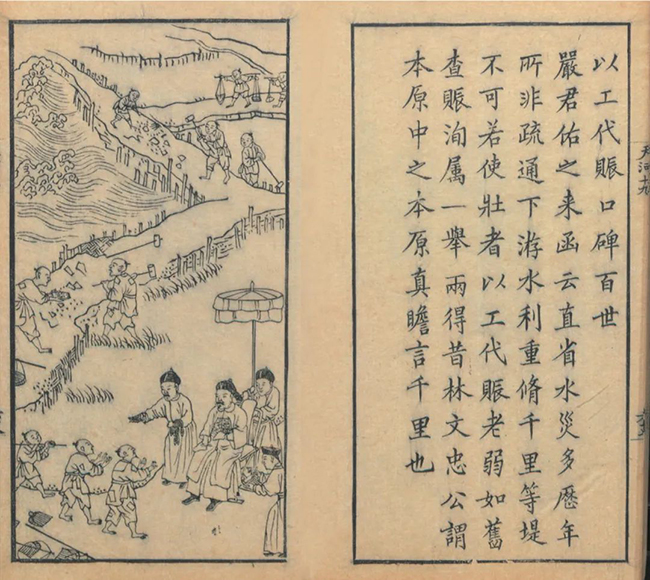 以工代賑口碑百世
嚴君佑之来函云直省水災多歷年
所非疏通下游水利重脩千里等堤
不可若使壯者以工代賑老弱如舊
查賑洵属一舉兩得昔林文忠公謂
本原中之本原真瞻言千里也